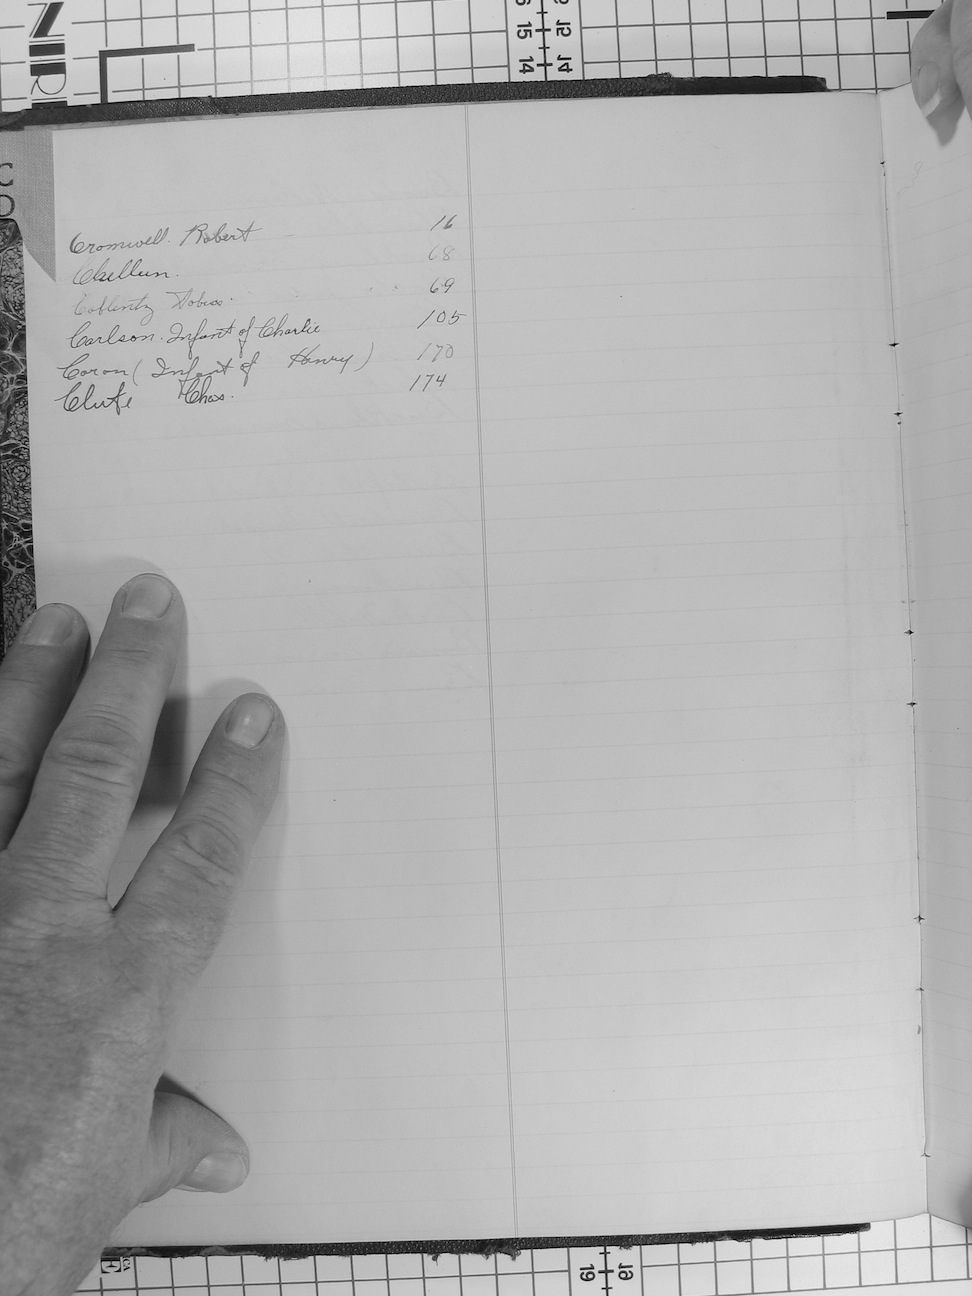 Cromwell. Robert 16
68
Coblentz Tobias. 69
Carlson. Infant of Charlie 105
Coron ( Infant of Henry ) 170
Clute Chas. 174